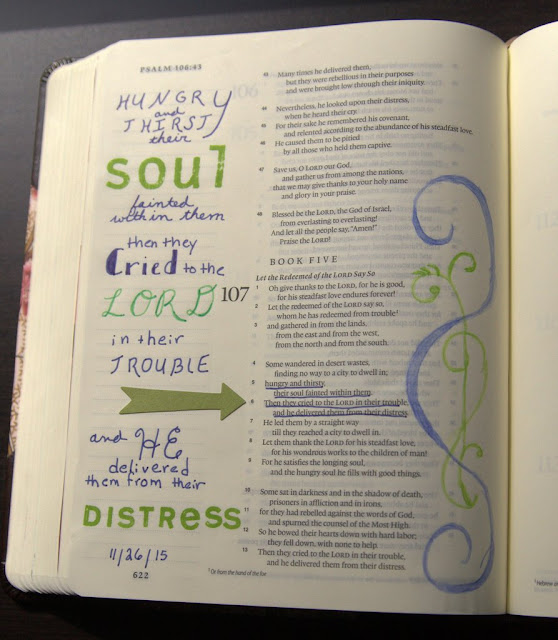 PSALM 106:43
HUNGRY
and
THIRSTY
their
soul
fainted
within them
then they
Cried to the
LORD
in their
TROUBLE
and HE
delivered
them from their
DISTRESS
11/26/15
622
43 Many times he delivered them,
but they were rebellious in their purposes
and were brought low through their iniquity.
44 Nevertheless, he looked upon their distress,
when he heard their cry.
45 For their sake he remembered his covenant,
and relented according to the abundance of his steadfast love.
46 He caused them to be pitied
by all those who held them captive.
47 Save us, O LORD our God,
and gather us from among the nations,
that we may give thanks to your holy name
and glory in your praise.
48 Blessed be the LORD, the God of Israel,
from everlasting to everlasting!
And let all the people say, "Amen!"
Praise the LORD!
BOOK FIVE
Let the Redeemed of the LORD Say So
107
1 Oh give thanks to the LORD, for he is good,
for his steadfast love endures forever!
2 Let the redeemed of the LORD say so,
whom he has redeemed from trouble
3 and gathered in from the lands,
from the east and from the west,
from the north and from the south.
4 Some wandered in desert wastes,
finding no way to a city to dwell in;
5 hungry and thirsty,
their soul fainted within them.
6 Then they cried to the LORD in their trouble,
and he delivered them from their distress.
7 He led them by a straight way
till they reached a city to dwell in.
8 Let them thank the LORD for his steadfast love,
for his wondrous works to the children of man!
9 For he satisfies the longing soul,
and the hungry soul he fills with good things.
10 Some sat in darkness and in the shadow of death,
prisoners in affliction and in irons,
11 for they had rebelled against the words of God,
and spurned the counsel of the Most High.
12 So he bowed their hearts down with hard labor;
they fell down, with none to help.
13 Then they cried to the LORD in their trouble,
and he delivered them from their distress.
1 Or from the hand of the foe